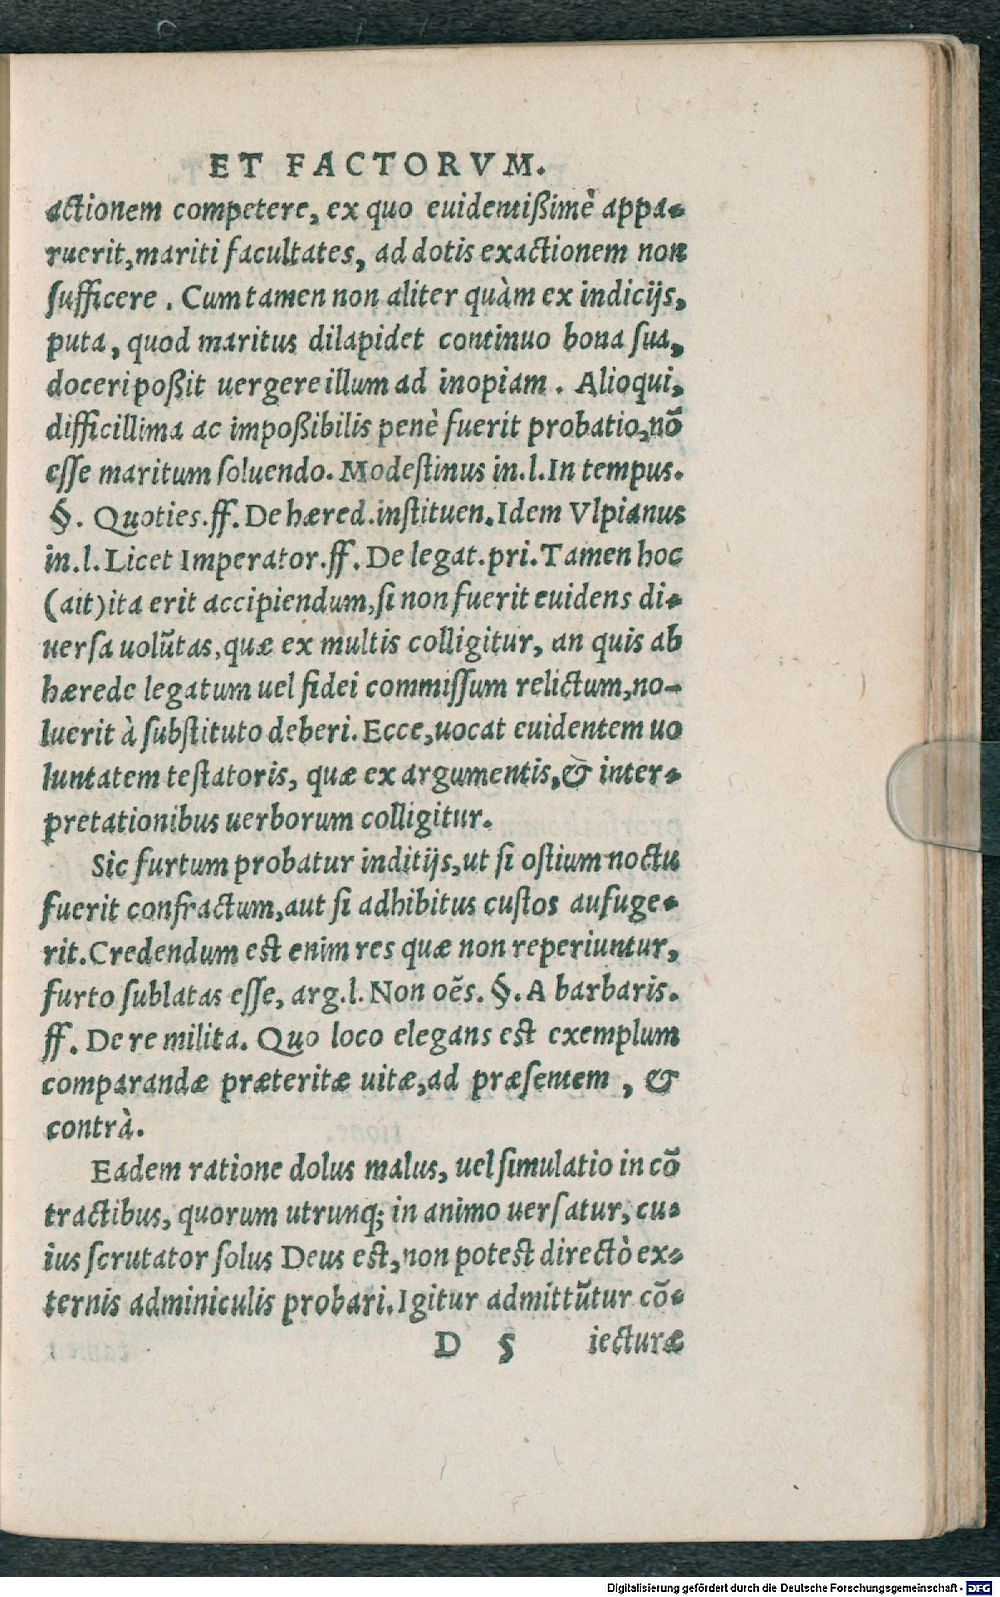 ET FACTORVM.
actionem competere, ex quo euidentißimè appa-
ruerit, mariti facultates, ad dotis exactionem non
sufficere. Cum tamen non aliter quàm ex indicijs,
puta, quod maritus dilapidet continuo bona sua,
doceri poßit uergere illum ad inopiam. Alioqui,
difficillima ac impoßibilis penè fuerit probatio, nõ
esse maritum soluendo. Modestinus in.l.In tempus.
§. Quoties.ff. De hæred.instituen. Idem Vlpianus
in.l. Licet Imperator.ff. De legat.pri. Tamen hoc
(ait) ita erit accipiendum, si non fuerit euidens di-
uersa uolũtas, quæ ex multis colligitur, an quis ab
hærede legatum uel fidei commissum relictum, no-
luerit à substituto deberi. Ecce, uocat euidentem uo
luntatem testatoris, quæ ex argumentis, & inter-
pretationibus uerborum colligitur.
Sic furtum probatur inditijs, ut si ostium noctu
fuerit confractum, aut si adhibitus custos aufuge-
rit. Credendum est enim res quæ non reperiuntur,
furto sublatas esse, arg.l. Non oẽs. §. A barbaris.
ff. De re milita. Quo loco elegans est exemplum
comparandæ præteritæ uitæ, ad præsentem, &
contrà.
Eadem ratione dolus malus, uel simulatio in cõ
tractibus, quorum utrunq; in animo uersatur, cu-
ius scrutator solus Deus est, non potest directò ex-
ternis adminiculis probari. Igitur admittũtur cõ-
D 5 iecturæ
Digitalisierung gefördert durch die Deutsche Forschungsgemeinschaft - DFG